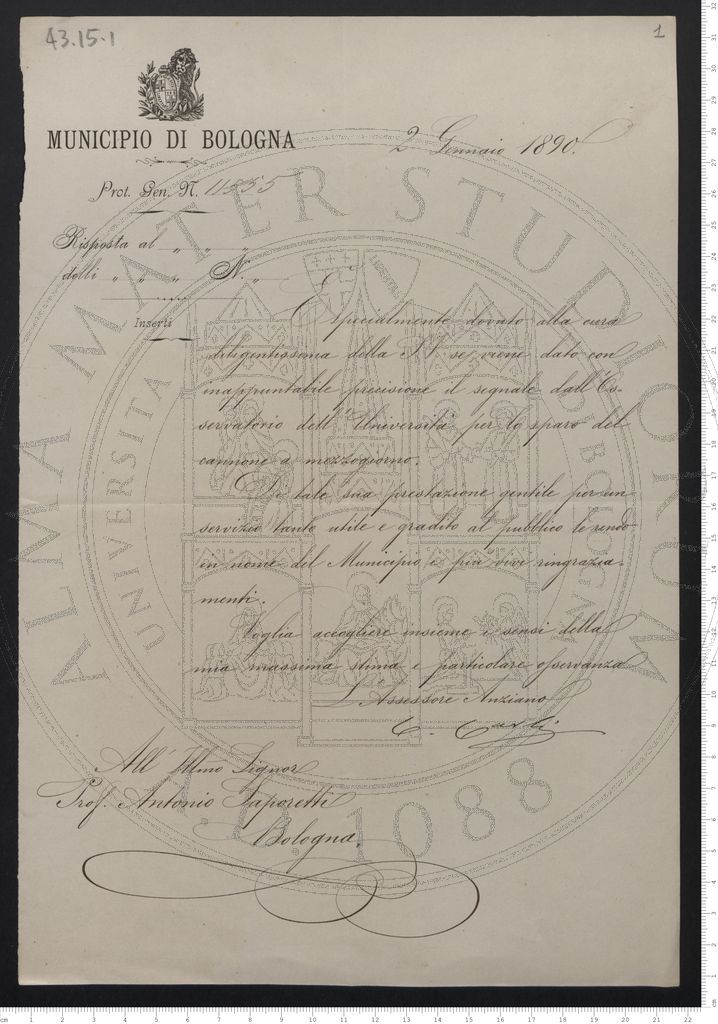 43.15.1
1
MUNICIPIO DI BOLOGNA
2 Gennaio 1890.
Prot. Gen. N. 11535
Risposta al „ „ „
delli „ „ „ N. „
Inserti
E' specialmente dovuto alla cura
diligentissima della S. V. se viene dato con
inappuntabile precisione il segnale dall'Os-
servatorio dell'Università per lo sparo del
cannone a mezzogiorno.
Di tale sua prestazione gentile per un
servizio tanto utile e gradito al pubblico le rendo
in nome del Municipio i più vivi ringrazia-
menti.
Voglia accogliere insieme i sensi della
mia massima stima e particolare osservanza
L'Assessore Anziano
All' Illmo Signor
Prof. Antonio Saporetti
Bologna.
ALMA MATER STUDIORUM
UNIVERSITA DI BOLOGNA
LIBERTAS
A.D. 1088
cm 1 2 3 4 5 6 7 8 9 10 11 12 13 14 15 16 17 18 19 20 21 22